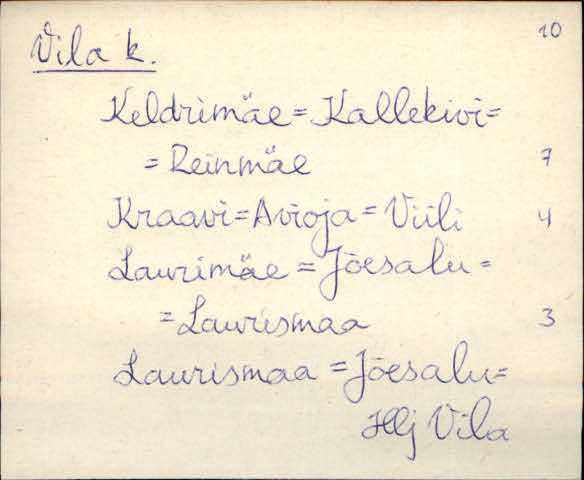 10
Vila k.
Keldrimäe = Kallekivi =
= Reinmäe 7
Kraavi = Avioja = Viili 4
Laurimäe = Jõesalu =
= Laurismaa 3
Laurismaa = Jõesalu =
Hlj Vila